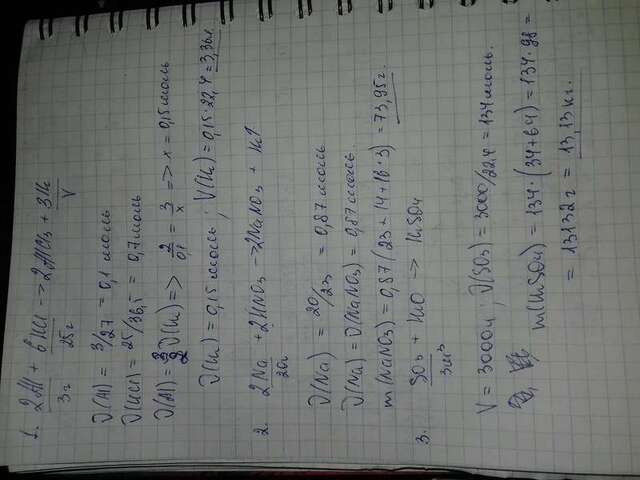 1. 2Al + 6HCl → 2AlCl3 + 3H2
3г 25г V
ν(Al) = 3/27 = 0,1 моль
ν(HCl) = 25/36,5 = 0,7 моль
ν(Al) = ν(H2) => 2/0,1 = 3/x => x = 0,15 моль
ν(H2) = 0,15 моль; V(H2) = 0,15·22,4 = 3,36л.
2. 2Na + 2HNO3 → 2NaNO3 + H2↑
20г
ν(Na) = 20/23 = 0,87 моль
ν(Na) = ν(NaNO3) = 0,87 моль
m(NaNO3) = 0,87(23+14+16·3) = 73,95г.
3. SO3 + H2O → H2SO4
3м³
V = 3000л; ν(SO3) = 3000/22,4 = 134 моль.
m(H2SO4) = 134·(34+64) = 134·98 =
= 13132г = 13,13 кг.